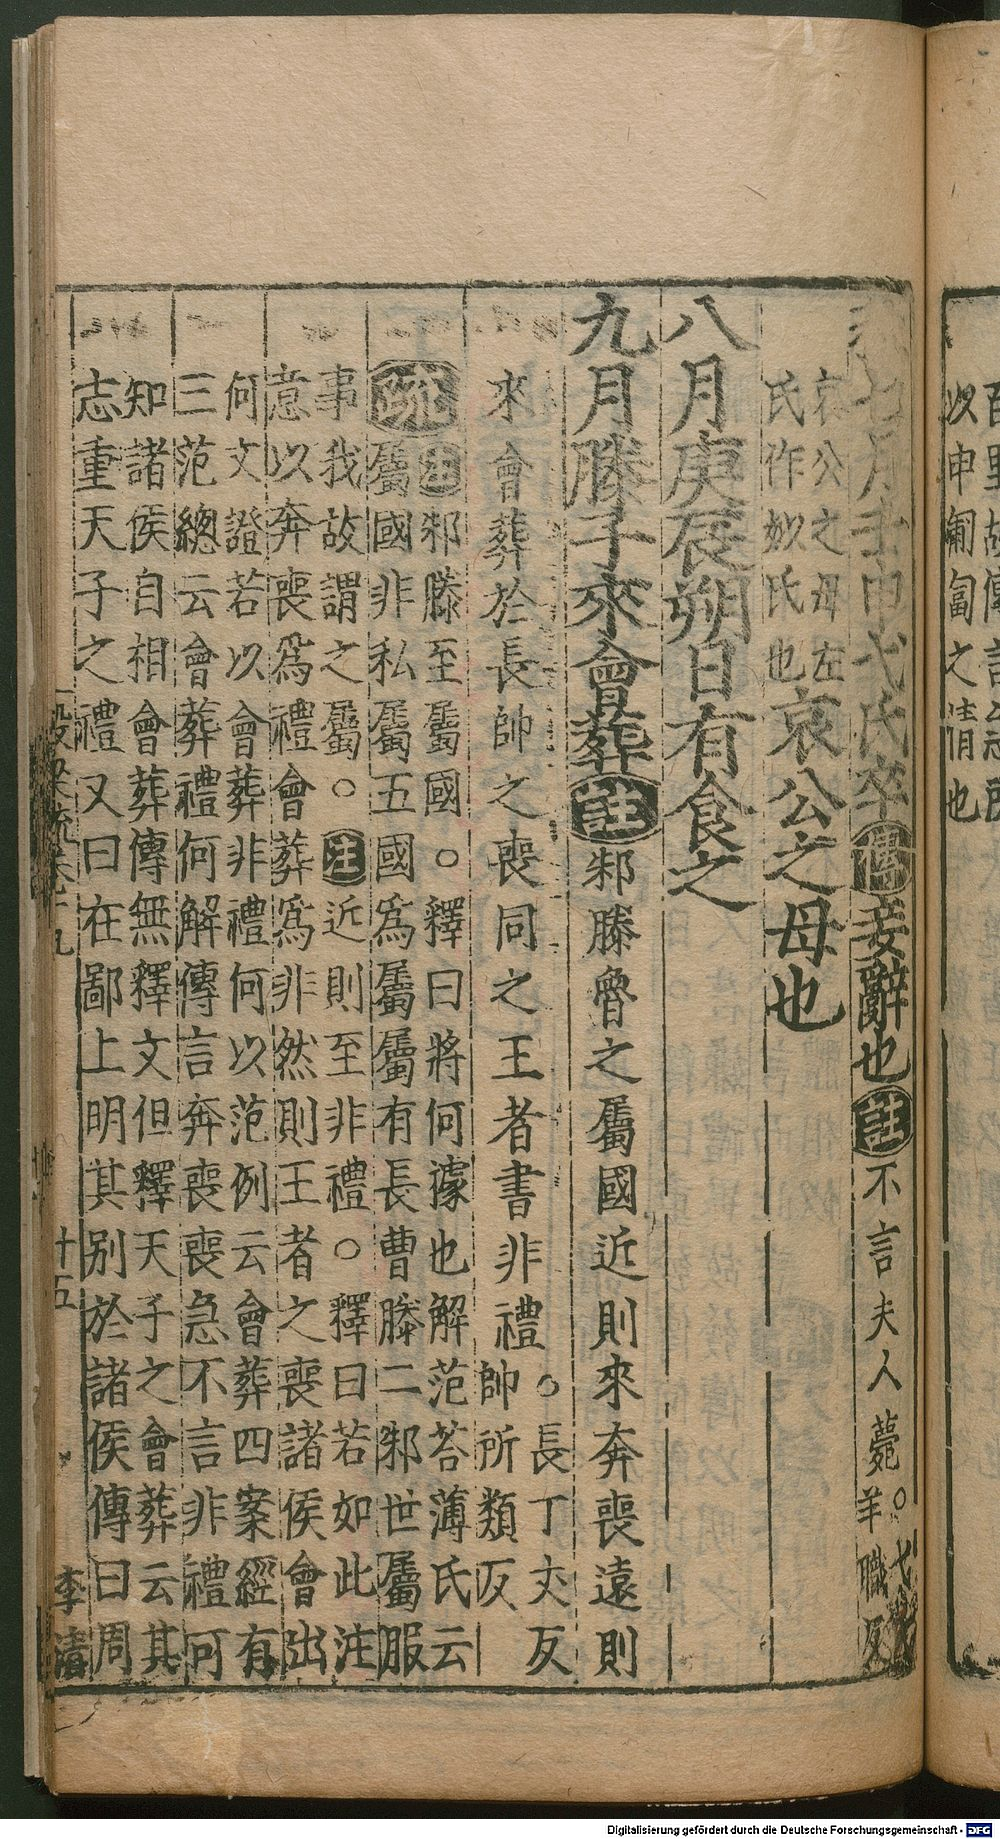 百里故傳言急所
以申匍匐之情也
秋七月壬申弋氏卒傳妾辭也註不言夫人薨○弋
羊職反
哀公之母左
氏作姒氏也哀公之母也
八月庚辰朔日有食之
九月滕子來會葬註邾滕魯之屬國近則來奔喪遠則
來會葬於長帥之喪同之王者書非禮○長丁丈反
帥所類反
疏注邾滕至屬國○釋曰將何據也解范荅薄氏云
屬國非私屬五國爲屬屬有長曹滕二邾世屬服
事我故謂之屬○注近則至非禮○釋曰若如此注
意以奔喪爲禮會葬爲非然則王者之喪諸侯會出
何文證若以會葬非禮何以范例云會葬四案經有
三范總云會葬禮何解傳言奔喪喪急不言非禮可
知諸侯自相會葬傳無釋文但釋天子之會葬云其
志重天子之禮又曰在鄙上明其别於諸侯傳曰周
穀梁疏卷二十九
十五
李清
Digitalisierung gefördert durch die Deutsche Forschungsgemeinschaft - DFG